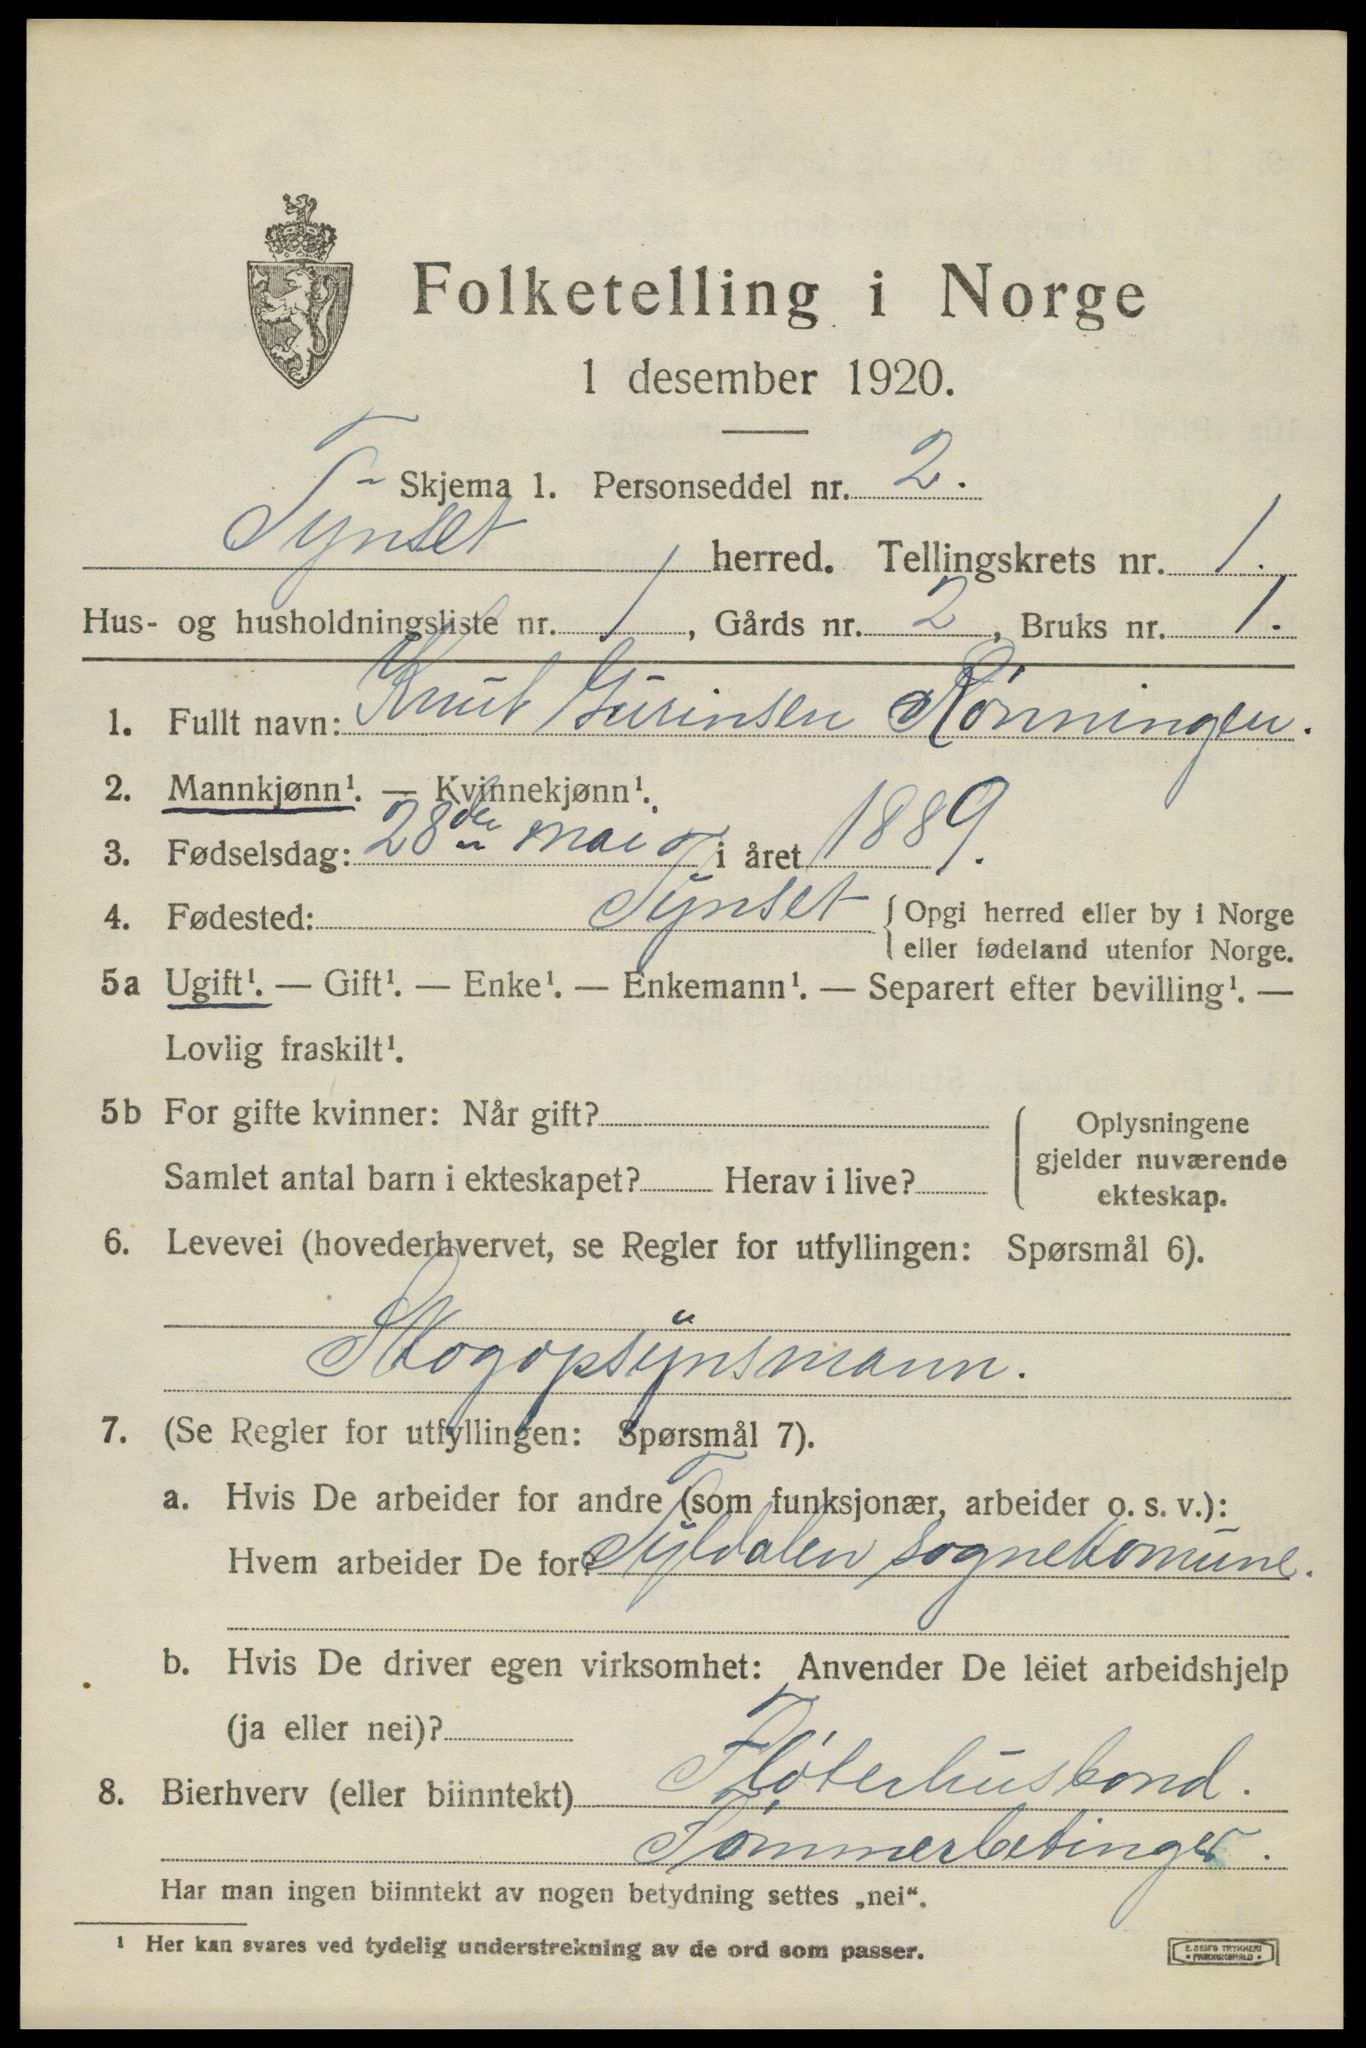 Folketelling i Norge
1 desember 1920.
Skjema 1. Personseddel nr. 2.
Tynset herred. Tellingskrets nr. 1.
Hus- og husholdningsliste nr. 1, Gårds nr. 2, Bruks nr. 1.
1. Fullt navn: Knut Gurinsen Rønningen.
2. Mannkjønn¹. — Kvinnekjønn¹.
3. Fødselsdag: 28de mai i året 1889.
4. Fødested: Tynset { Opgi herred eller by i Norge
eller fødeland utenfor Norge.
5a Ugift¹. — Gift¹. — Enke¹. — Enkemann¹. — Separert efter bevilling¹. —
Lovlig fraskilt¹.
5b For gifte kvinner: Når gift?
Samlet antal barn i ekteskapet? Herav i live?
Oplysningene
gjelder nuværende
ekteskap.
6. Levevei (hovederhvervet, se Regler for utfyllingen: Spørsmål 6).
Skogopsynsmann.
7. (Se Regler for utfyllingen: Spørsmål 7).
a. Hvis De arbeider for andre (som funksjonær, arbeider o. s. v.):
Hvem arbeider De for? Tyldalen sognekomune.
b. Hvis De driver egen virksomhet: Anvender De leiet arbeidshjelp
(ja eller nei)?
8. Bierhverv (eller biinntekt) Fløterhusbond.
Tømmerbetinger.
Har man ingen biinntekt av nogen betydning settes „nei“.
¹ Her kan svares ved tydelig understrekning av de ord som passer.
E. SEMS TRYKKERI
• FREDRIKSHALD •